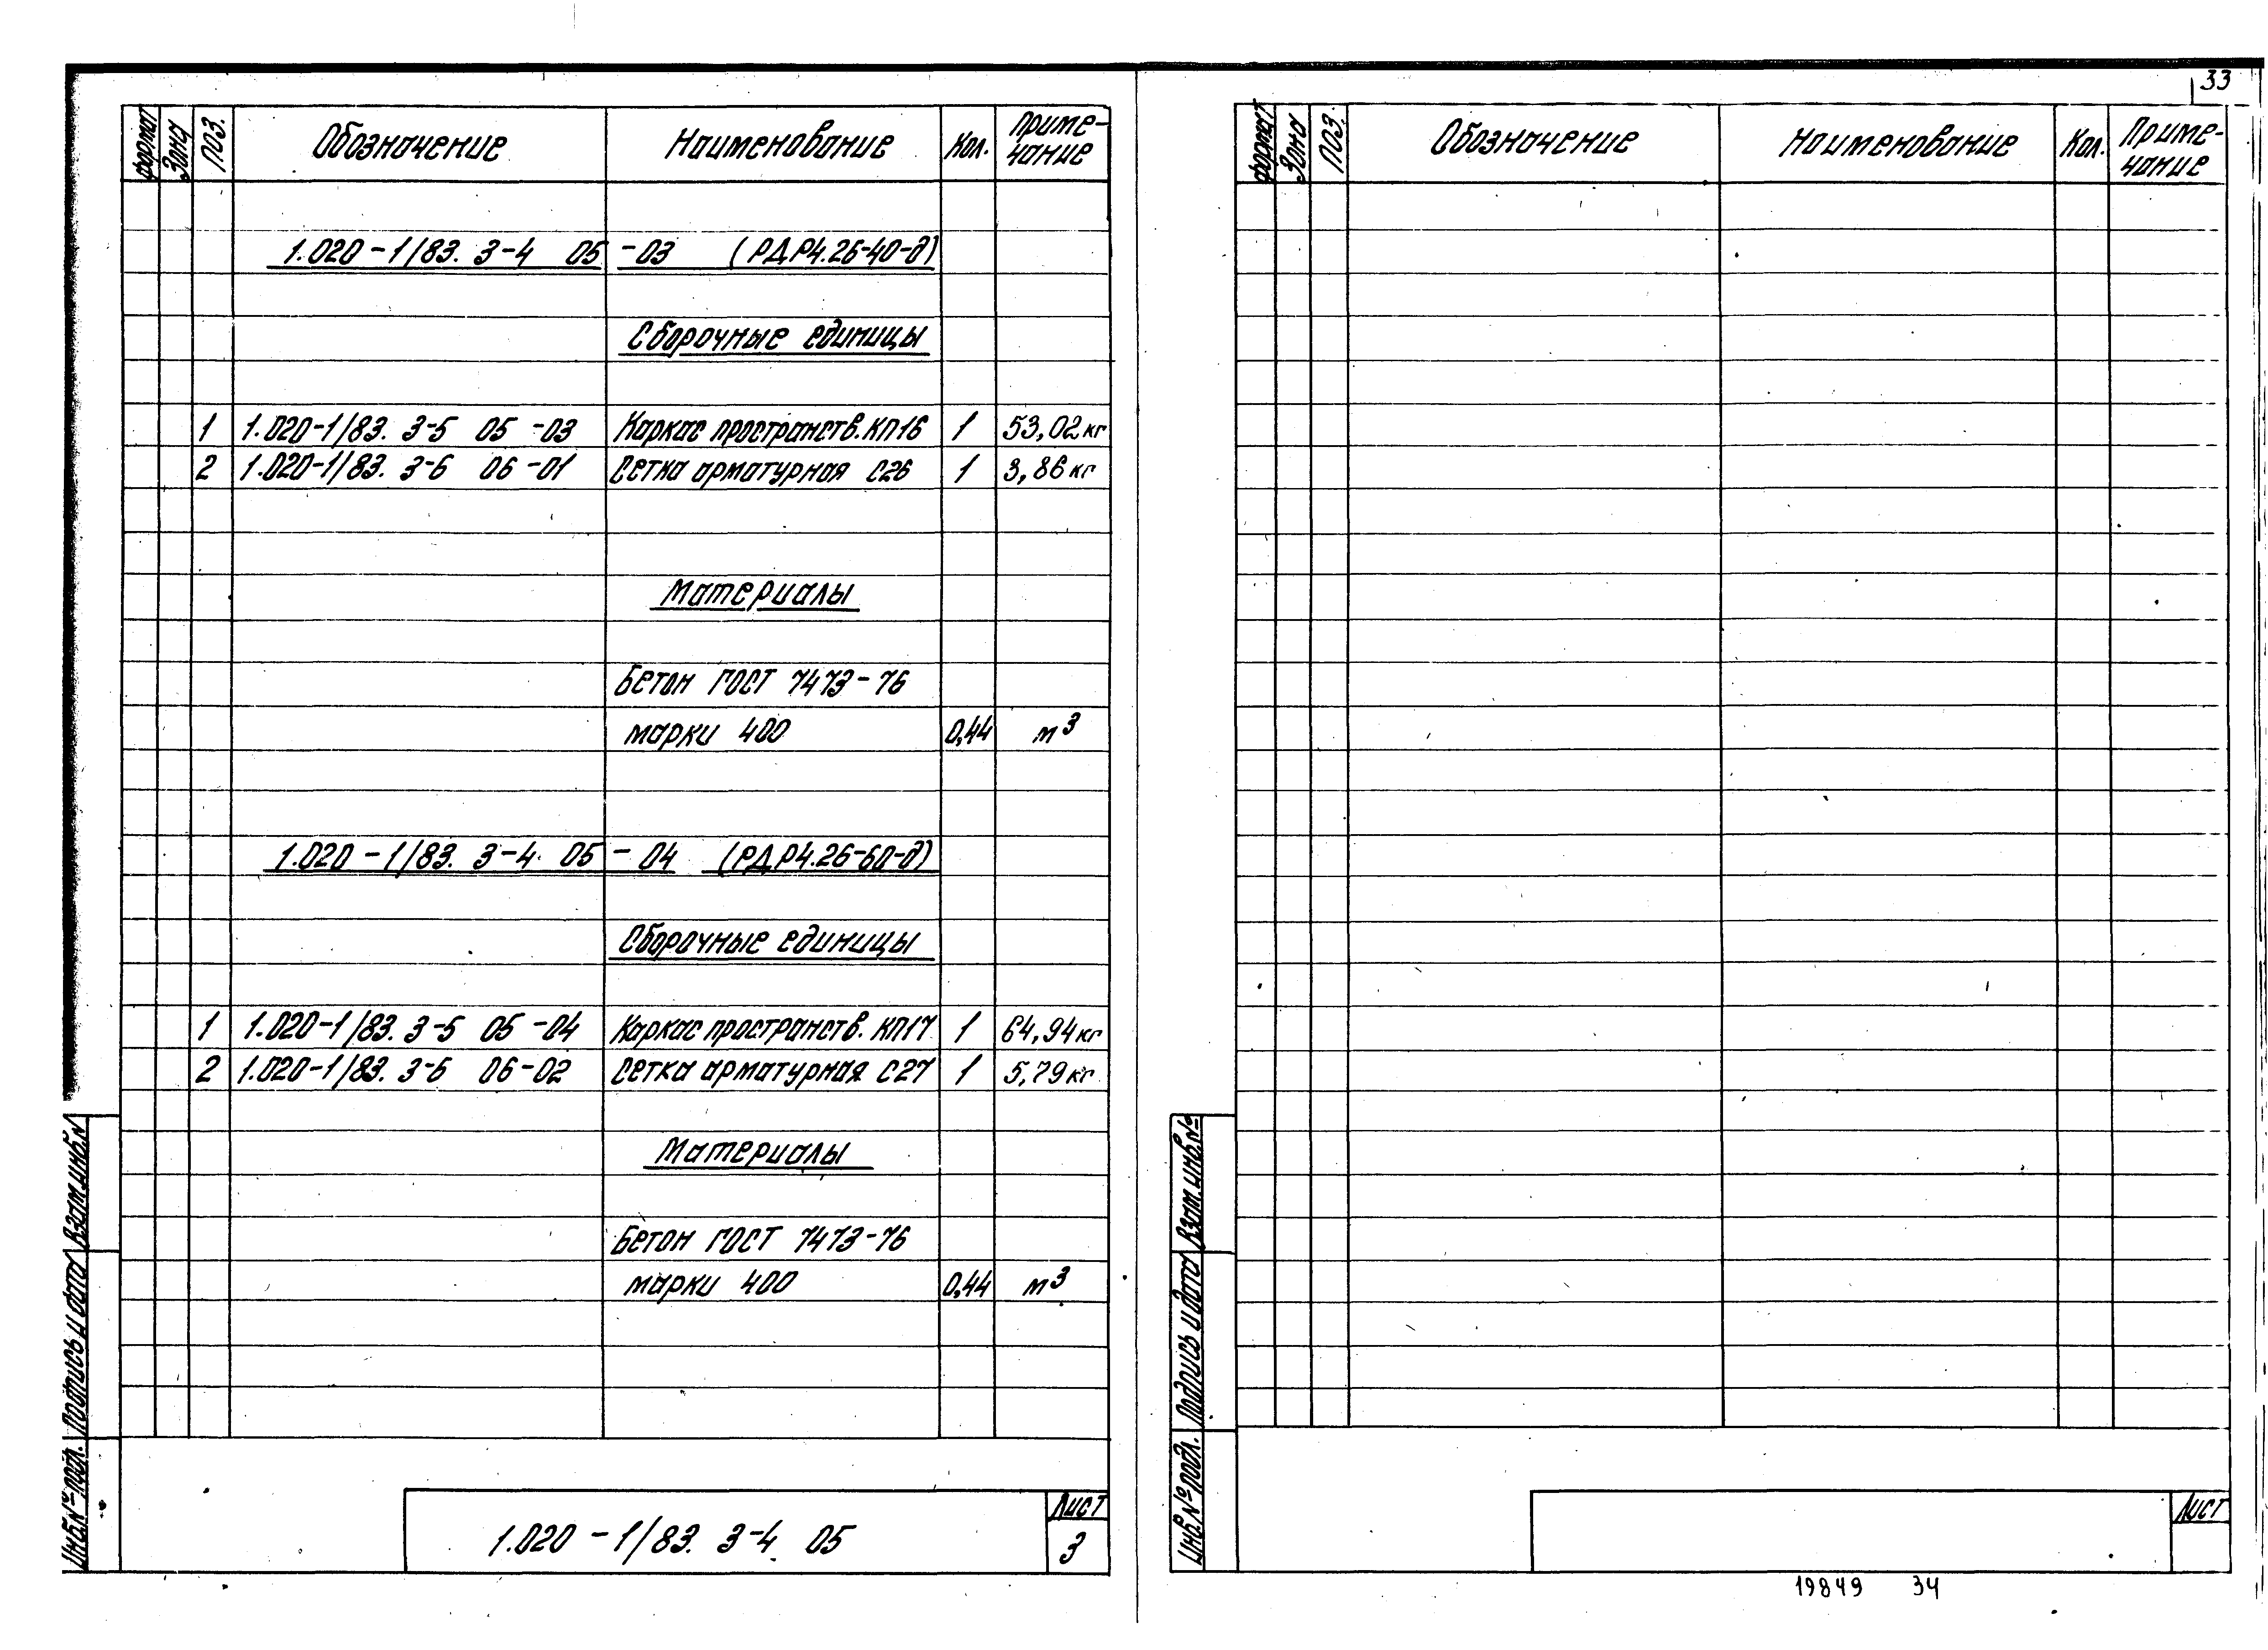 33
формат Зона ПОЗ. Обозначение Наименование Кол. Приме-
чание
1.020-1/83. 3-4 05 -03 (РДР4.26-40-д)
Сборочные единицы
1 1.020-1/83. 3-5 05 -03 Каркас пространств. КП16 1 53,02кг
2 1.020-1/83. 3-6 06 -01 Сетка арматурная С26 1 3,86кг
Материалы
Бетон ГОСТ 7473-76
марки 400 0,44 м³
1.020-1/83. 3-4 05 - 04 (РДР4.26-60-д)
Сборочные единицы
1 1.020-1/83. 3-5 05 -04 Каркас пространств. КП17 1 64,94кг
2 1.020-1/83. 3-6 06-02 Сетка арматурная С27 1 5,79кг
Материалы
Бетон ГОСТ 7473-76
марки 400 0,44 м³
Инв.№подл. Подпись и дата Взам.инв.№
1.020-1/83. 3-4 05
Лист
3
формат Зона ПОЗ. Обозначение Наименование Кол. Приме-
чание
Инв.№подл. Подпись и дата Взам.инв.№
Лист
19849 34